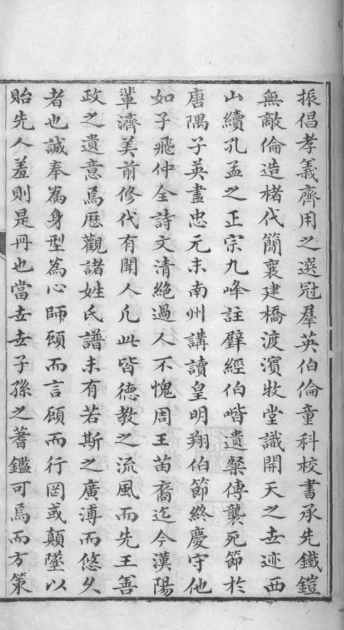 振倡孝義齊用之選冠羣英伯倫童科校書承先鐵鎧
無敵倫造楮代簡襄建橋渡濱牧堂識開天之去迹西
山續孔孟之正宗九峰註璧經伯喈遺槃傳襲死節於
唐隅子英盡忠元末南州講讀皇明翔伯節終慶守他
如子飛仲全詩文清絕過人不愧周王苗裔迄今漢陽
輩濟美前修代有聞人凢此皆德教之流風而先王善
政之遺意焉厯觀諸姓氏譜未有若斯之廣溥而悠久
者也誠奉為身型為心師頤而言頋而行罔或顛墜以
貽先人羞則是冊也當去去子孫之蓍鑑可焉而方策